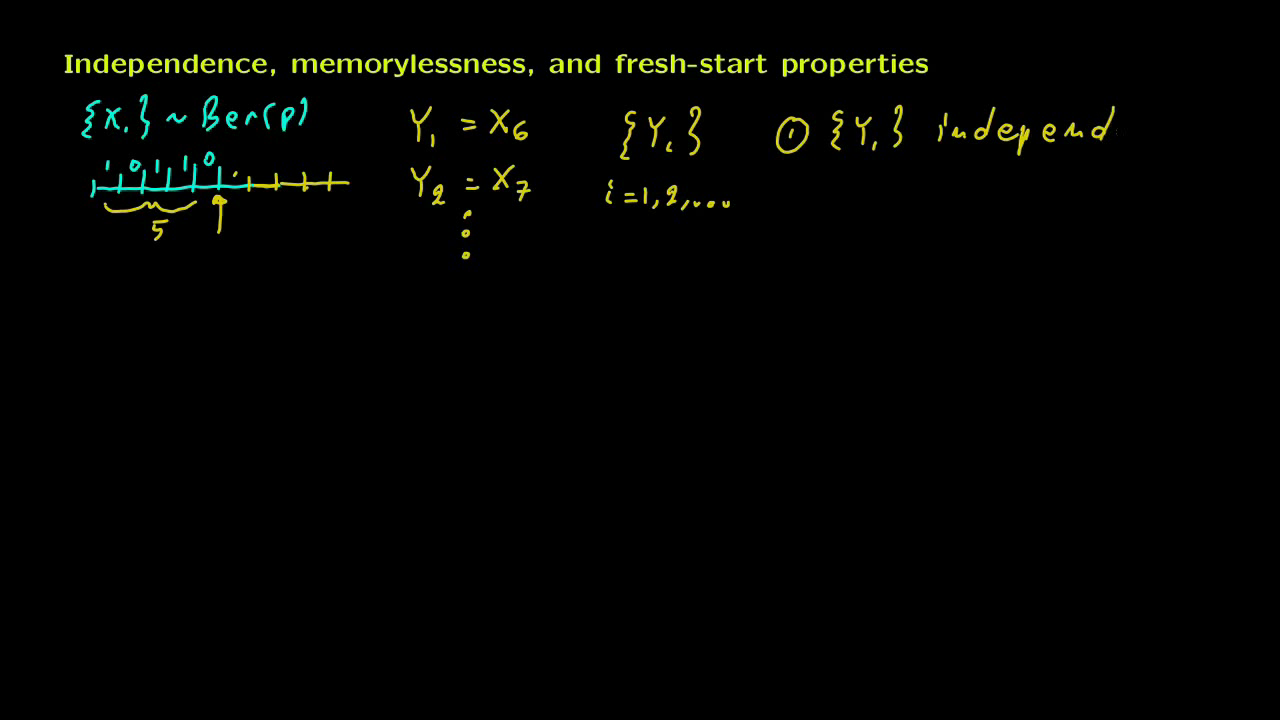 Independence, memorylessness, and fresh-start properties
{X.} ~ Ber(p)
1 0 1 1 0
5
Y₁ = X₆
Y₂ = X₇
{Yᵢ}
i = 1, 2, ...
① {Yᵢ} independ